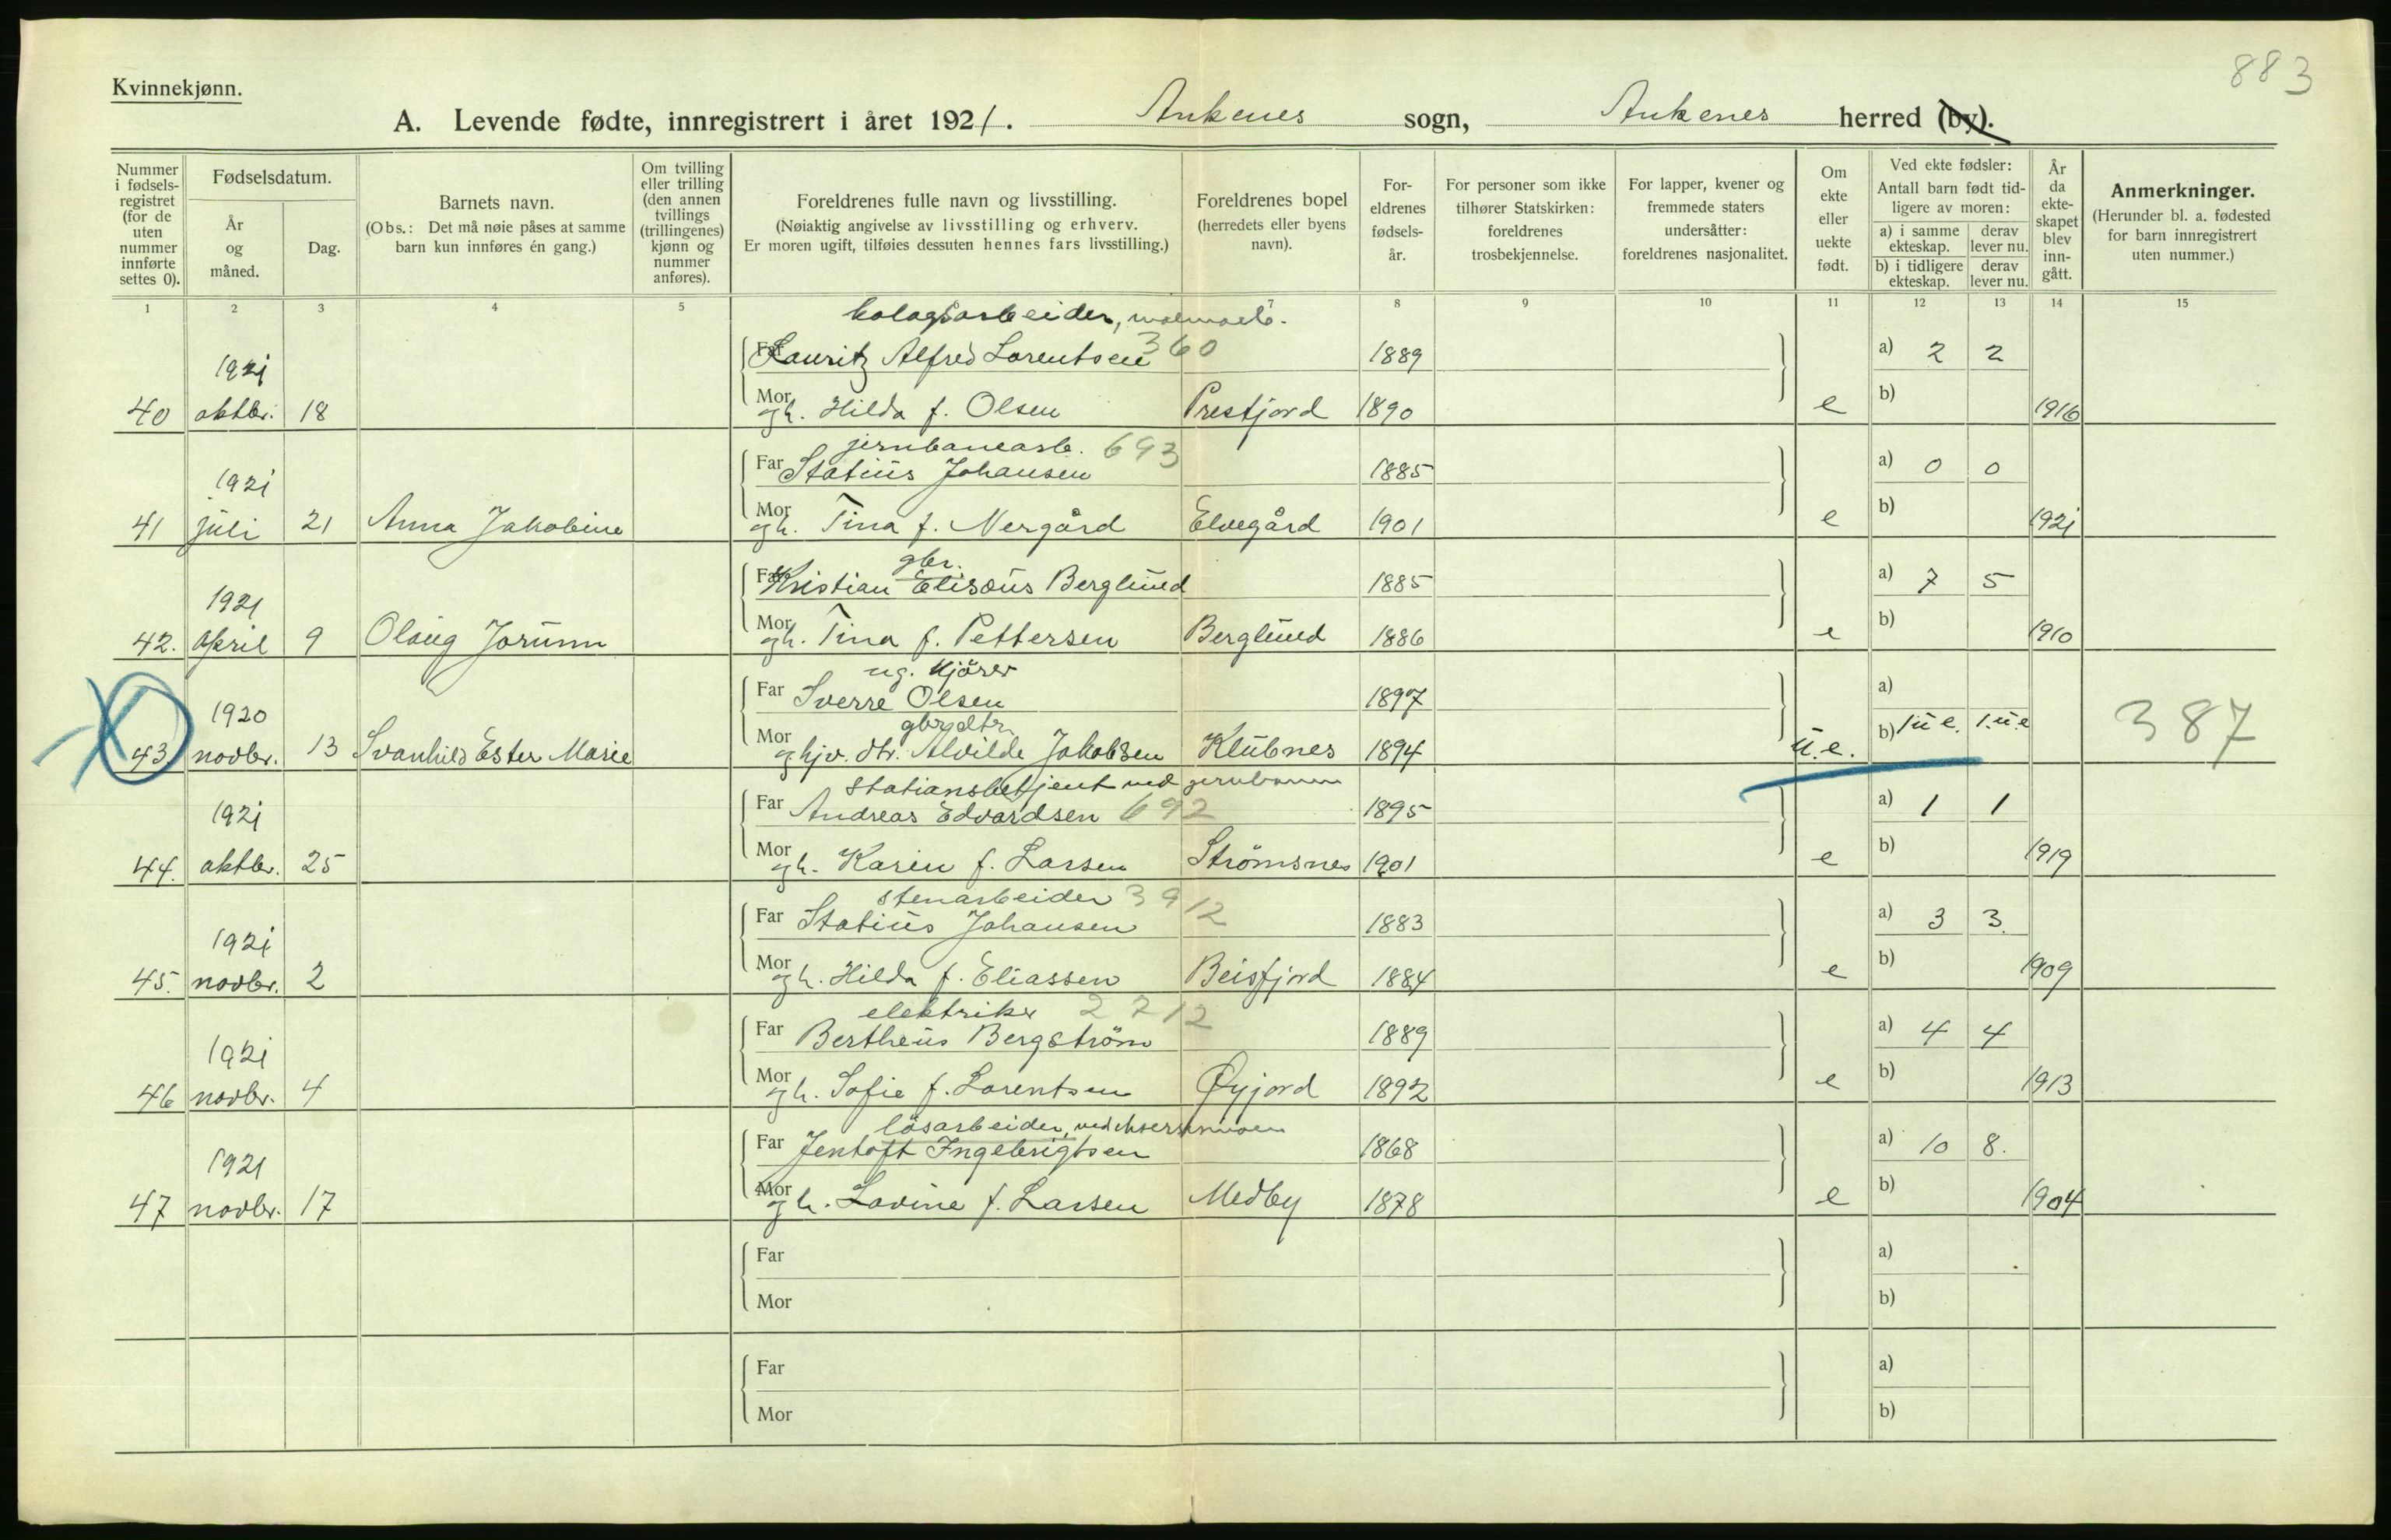 883
Kvinnekjønn.
A. Levende fødte, innregistrert i året 1921. Ankenes sogn, Ankenes herred (by).
Nummer i fødsels-registret (for de uten nummer innførte settes 0).
Fødselsdatum.
År og måned.
Dag.
Barnets navn.
(Obs.: Det må nøie påses at samme barn kun innføres én gang.)
Om tvilling eller trilling (den annen tvillings (trillingenes) kjønn og nummer anføres).
Foreldrenes fulle navn og livsstilling.
(Nøiaktig angivelse av livsstilling og erhverv.
Er moren ugift, tilføies dessuten hennes fars livsstilling.)
Foreldrenes bopel
(herredets eller byens navn).
For-eldrenes fødsels-år.
For personer som ikke tilhører Statskirken: foreldrenes trosbekjennelse.
For lapper, kvener og fremmede staters undersåtter: foreldrenes nasjonalitet.
Om ekte eller uekte født.
Ved ekte fødsler:
Antall barn født tid-ligere av moren:
a) i samme ekteskap. derav lever nu.
b) i tidligere ekteskap. derav lever nu.
År da ekte-skapet blev inn-gått.
Anmerkninger.
(Herunder bl. a. fødested for barn innregistrert uten nummer.)
1 2 3 4 5 7 8 9 10 11 12 13 14 15
bolagsarbeider,
1921 Far Lauritz Alfred Lorentsen 360 1889 a) 2 2
40 oktbr. 18 Mor gh. Hilda f. Olsen Prestjord 1890 e b) 1916
jernbanearb. 693
1921 Far Statius Johansen 1885 a) 0 0
41 juli 21 Anna Jakobine Mor gh. Tina f. Nergård Elvegård 1901 e b) 1921
gbr.
1921 Far Kristian Elisæus Berglund 1885 a) 7 5
42. April 9 Olaug Jorunn Mor gh. Tina f. Pettersen Berglund 1886 e b) 1910
ug. Kjører
1920 Far Sverre Olsen 1897 a)
gbrsdtr.
43. novbr. 13 Svanhild Ester Marie Mor Alvilde Jakobsen Klubnes 1894 u.e. b) 1 u e. 1. u e 387
stationsbetjent ved jernbanen
1921 Far Andreas Edvardsen 692 1895 a) 1 1
44. oktbr. 25 Mor gh. Karin f. Larsen Strømsnes 1901 e b) 1919
stenarbeider 3912
1921 Far Statius Johansen 1883 a) 3 3.
45. novbr. 2 Mor gh. Hilda f. Eliassen Beisfjord 1884 e b) 1909
elektriker 2712
1921 Far Bertheus Bergström 1889 a) 4 4
46 novbr. 4 Mor gh. Sofie f. Lorentsen Øyjord 1892 e b) 1913
løsarbeider,
1921 Far Jentoft Ingebrigtsen 1868 a) 10 8.
47 novbr. 17 Mor gh. Lovine f. Larsen Medby 1878 e b) 1904
Far a)
Mor b)
Far a)
Mor b)